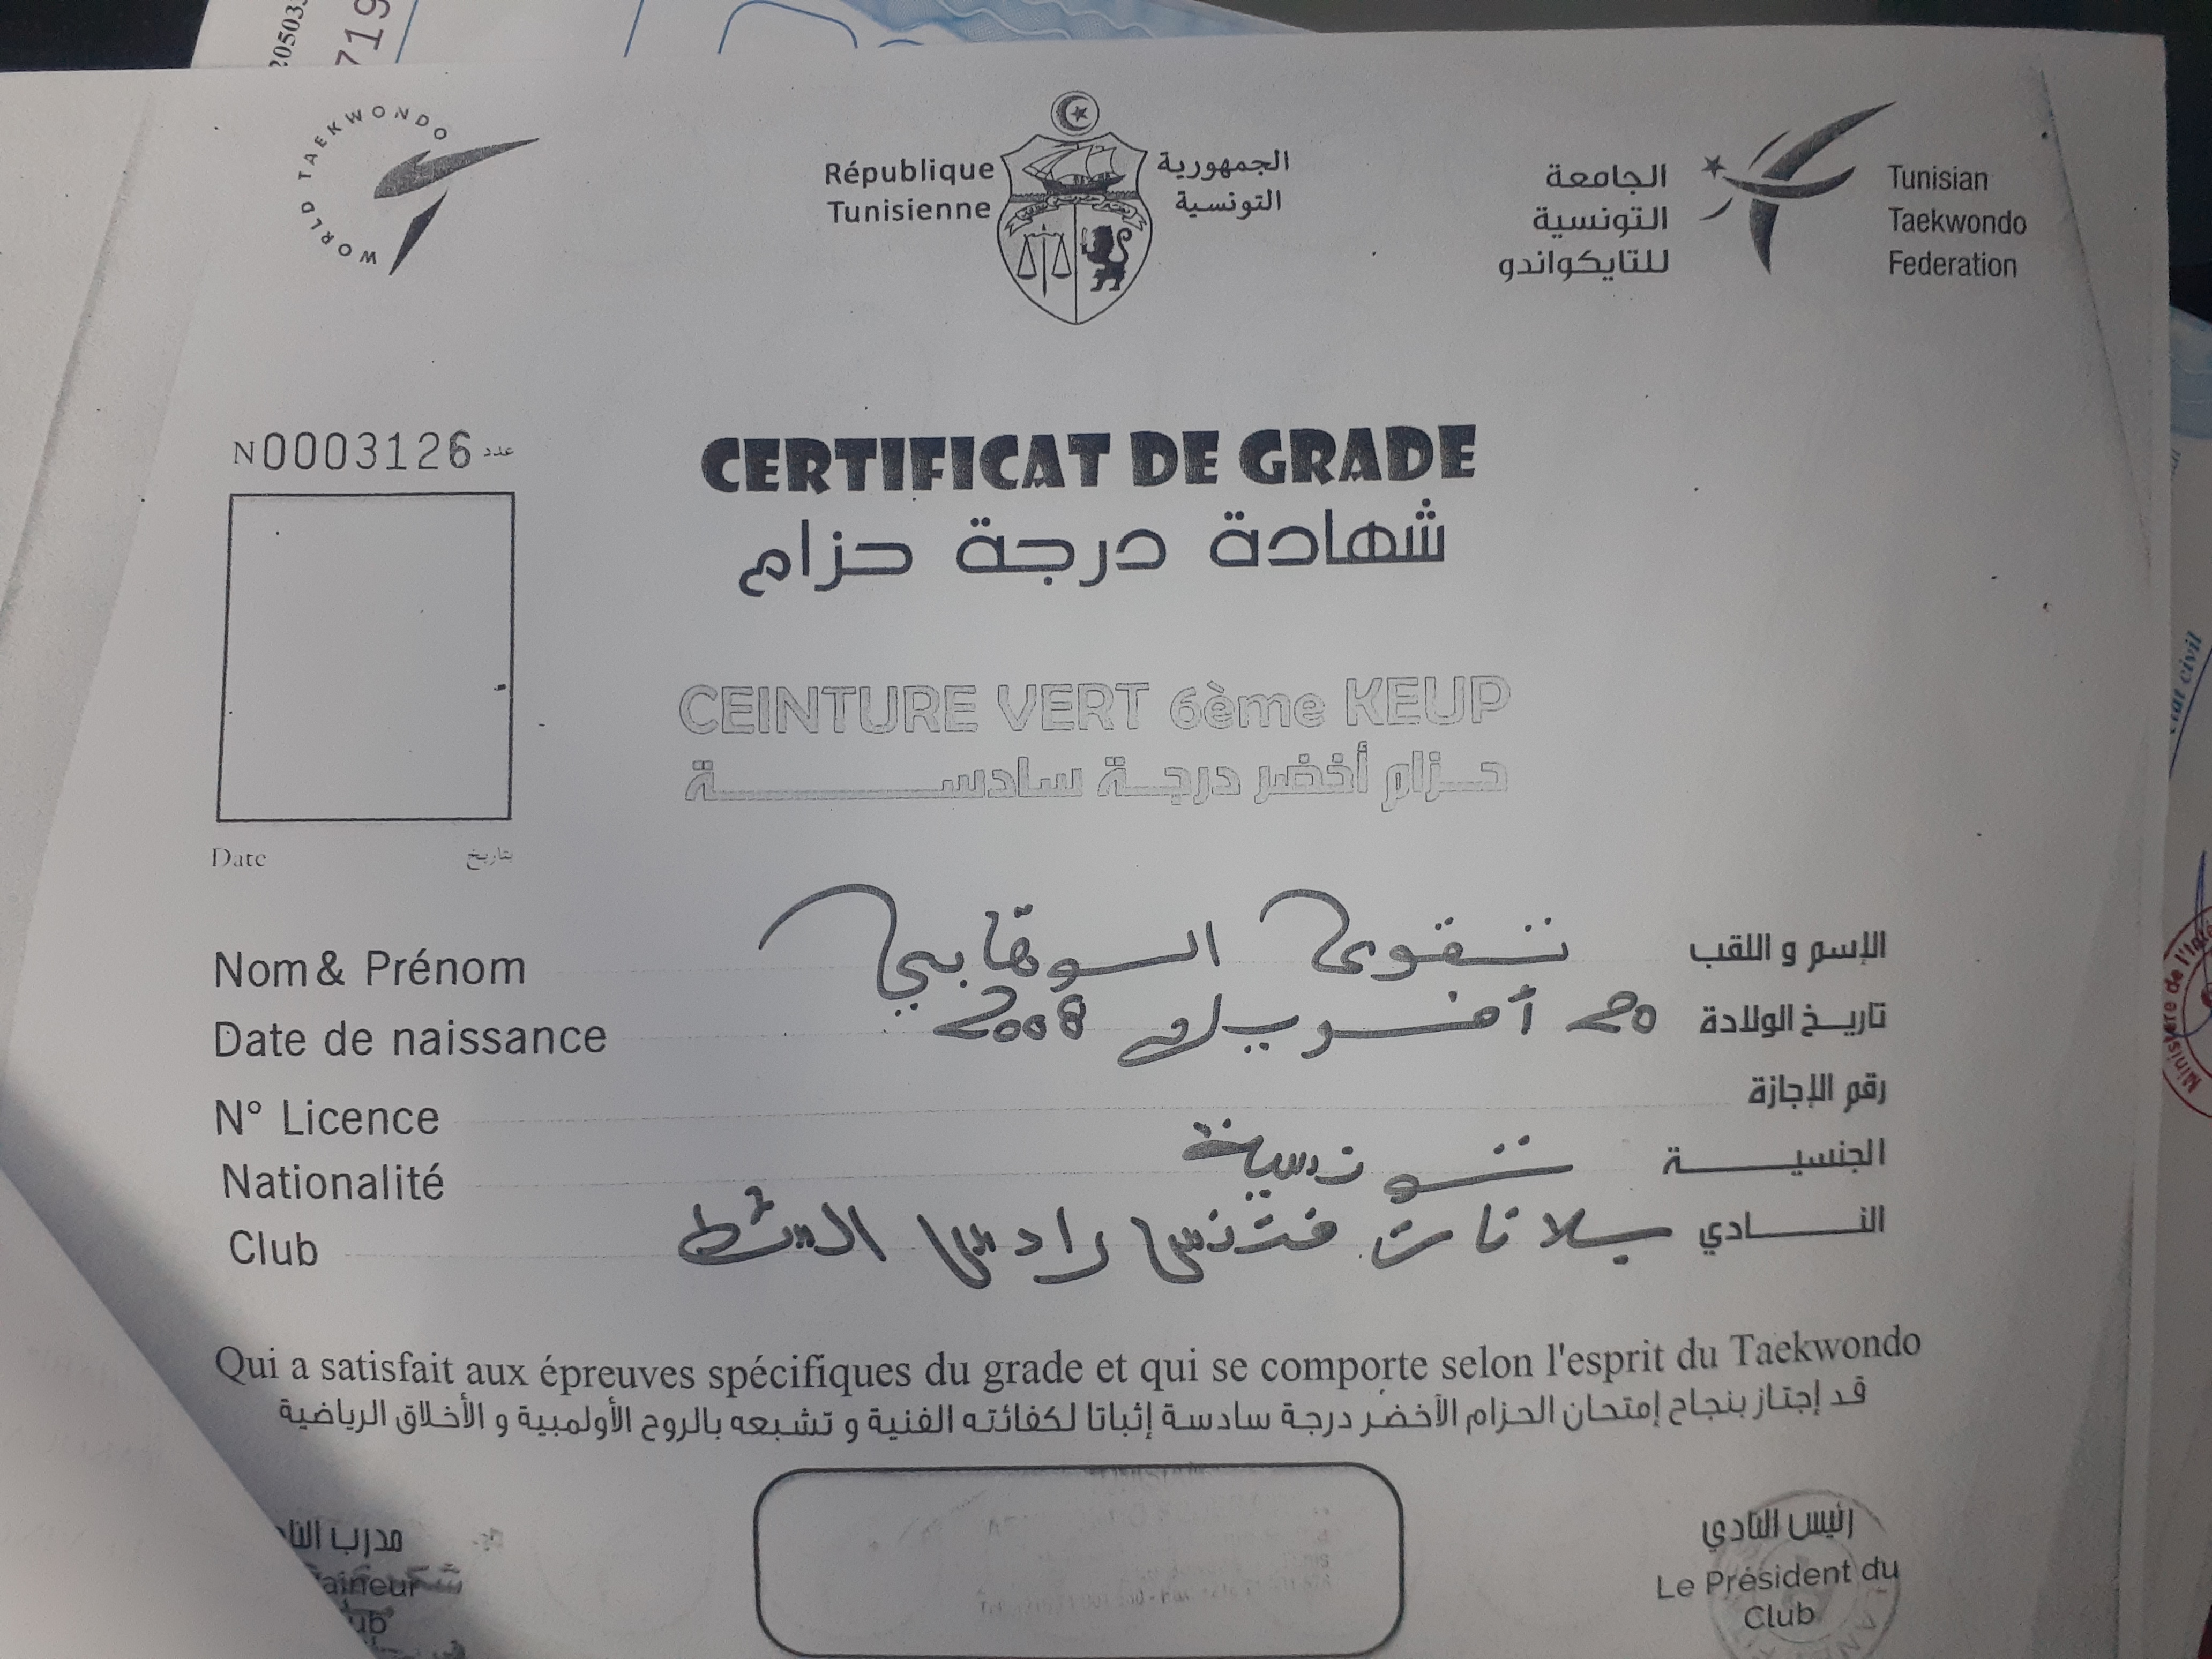 205035
719
WORLD TAEKWONDO
République Tunisienne
الجمهورية التونسية
الجامعة التونسية للتايكواندو
Tunisian Taekwondo Federation
N0003126 عدد
CERTIFICAT DE GRADE
شهادة درجة حزام
CEINTURE VERT 6ème KEUP
حزام أخضر درجة سادسة
Date بتاريخ
Nom& Prénom تقوى السوهابي الإسم و اللقب
Date de naissance 20 أفريل 2008 تاريخ الولادة
N° Licence رقم الإجازة
Nationalité تونسية الجنسية
Club بلانات فتنس رادس الشط النادي
Qui a satisfait aux épreuves spécifiques du grade et qui se comporte selon l'esprit du Taekwondo
قد إجتاز بنجاح إمتحان الحزام الأخضر درجة سادسة إثباتا لكفائته الفنية و تشبعه بالروح الأولمبية و الأخلاق الرياضية
مدرب
رئيس النادي
Le Président du
Club
état civil
Ministère de l'Inté